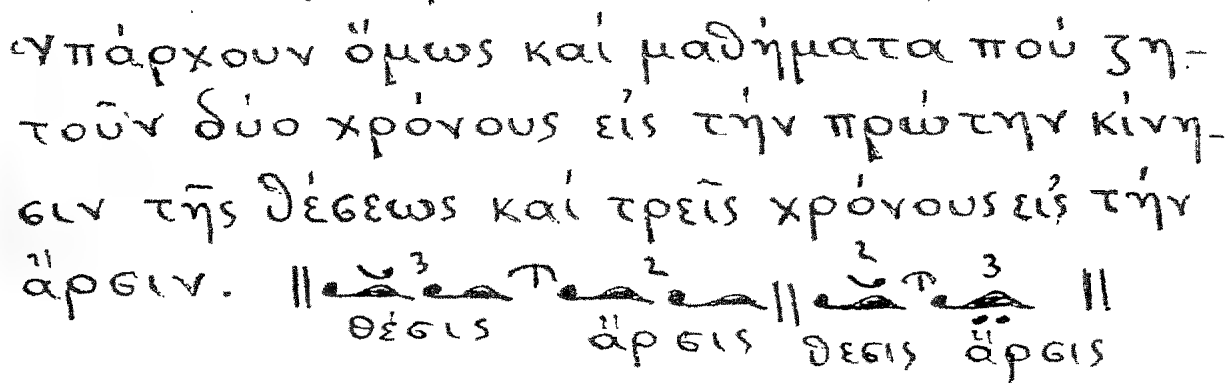 Ὑπάρχουν ὅμως καί μαθήματα πού ζη-
τοῦν δύο χρόνους εἰς τήν πρώτην κίνη-
σιν τῆς θέσεως καί τρεῖς χρόνους εἰς τήν
ἄρσιν. || 3 2 || 2 3 ||
θέσις ἄρσις θεσις ἄρσις